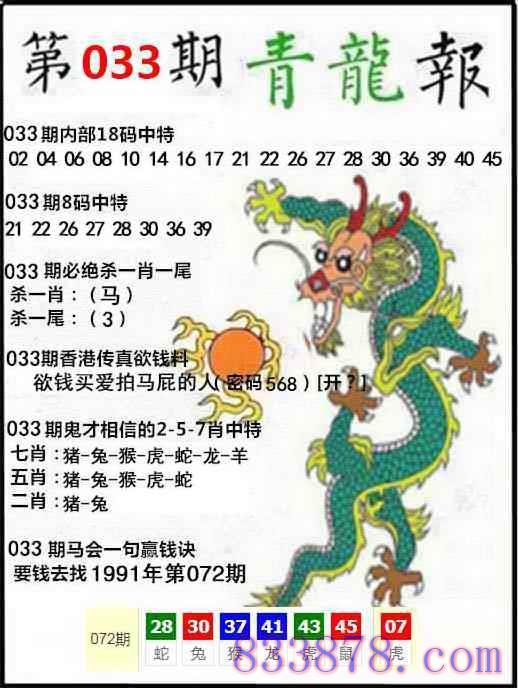 第033期青龍報
033期内部18码中特
02 04 06 08 10 14 16 17 21 22 26 27 28 30 36 39 40 45
033期8码中特
21 22 26 27 28 30 36 39
033期必绝杀一肖一尾
杀一肖：（马）
杀一尾：（3）
033期香港传真欲钱料
欲钱买爱拍马屁的人(密码568)[开?]
033期鬼才相信的2-5-7肖中特
七肖：猪-兔-猴-虎-蛇-龙-羊
五肖：猪-兔-猴-虎-蛇
二肖：猪-兔
033期马会一句赢钱诀
要钱去找1991年第072期
072期 28 30 37 41 43 45 07
蛇 兔 猴 龙 虎 鼠 虎
833878.com